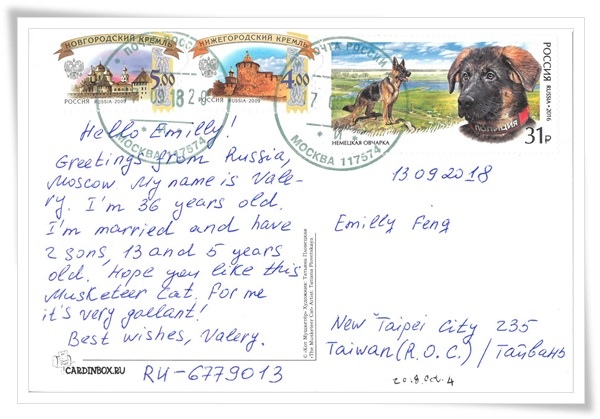 НОВГОРОДСКИЙ КРЕМЛЬ
5,00
РОССИЯ RUSSIA·2009
НИЖЕГОРОДСКИЙ КРЕМЛЬ
4,00
РОССИЯ RUSSIA·2009
МОСКВА 117574
ПОЧТА РОССИИ
МОСКВА 117574
НЕМЕЦКАЯ ОВЧАРКА
ПОЛИЦИЯ
РОССИЯ
RUSSIA·2016
31₽
Hello Emilly!
Greetings from Russia,
Moscow. My name is Vale-
ry. I'm 36 years old.
I'm married and have
2 sons, 13 and 5 years
old. Hope you like this
Musketeer Cat. For me
it's very gallant!
Best wishes, Valery.
CARDINBOX.RU
RU-6779013
«Кот Мушкетёр» Художник: Татьяна
«The Musketeer Cat» Artist: Tatiana
13 09 2018
Emilly Feng
New Taipei City 235
Taiwan (R.O.C.) / Тайвань